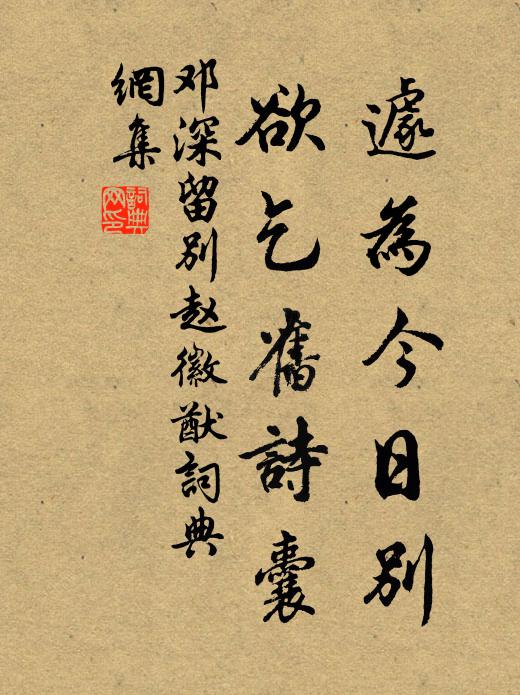 遽為今日別
欲乞舊詩囊
邓深留別赵徽猷詞典
網集
詞典
网印